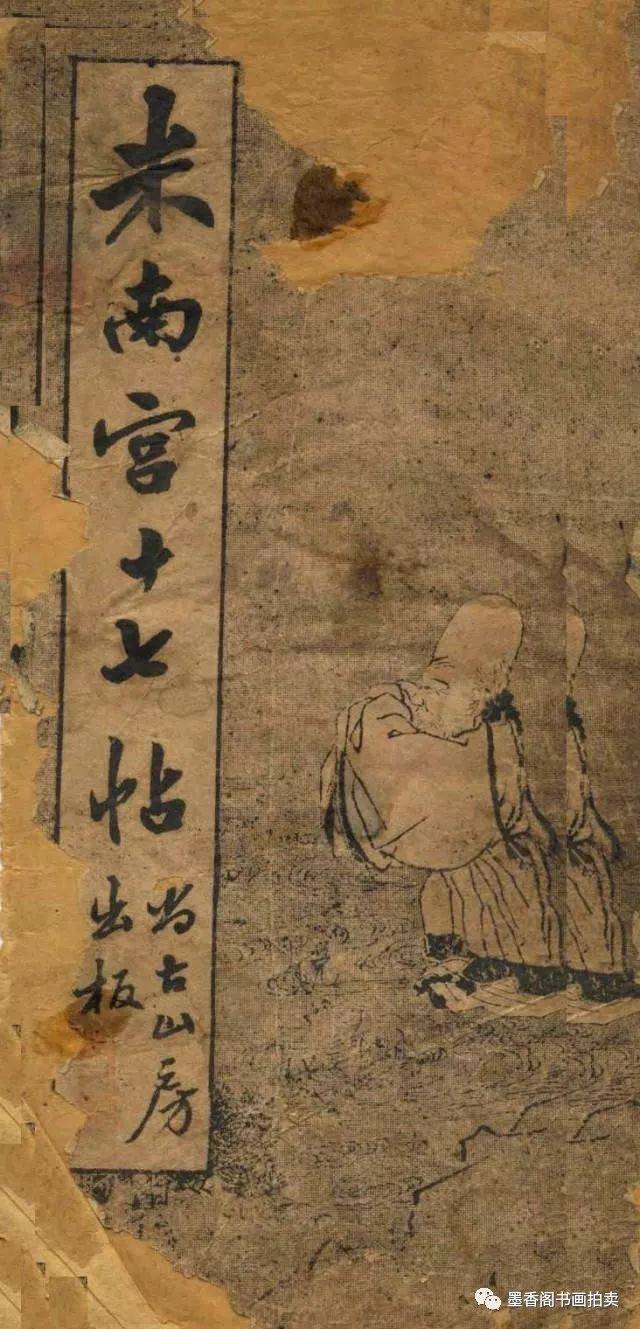 米南宫十七帖
尚古山房
出板
墨香阁书画拍卖